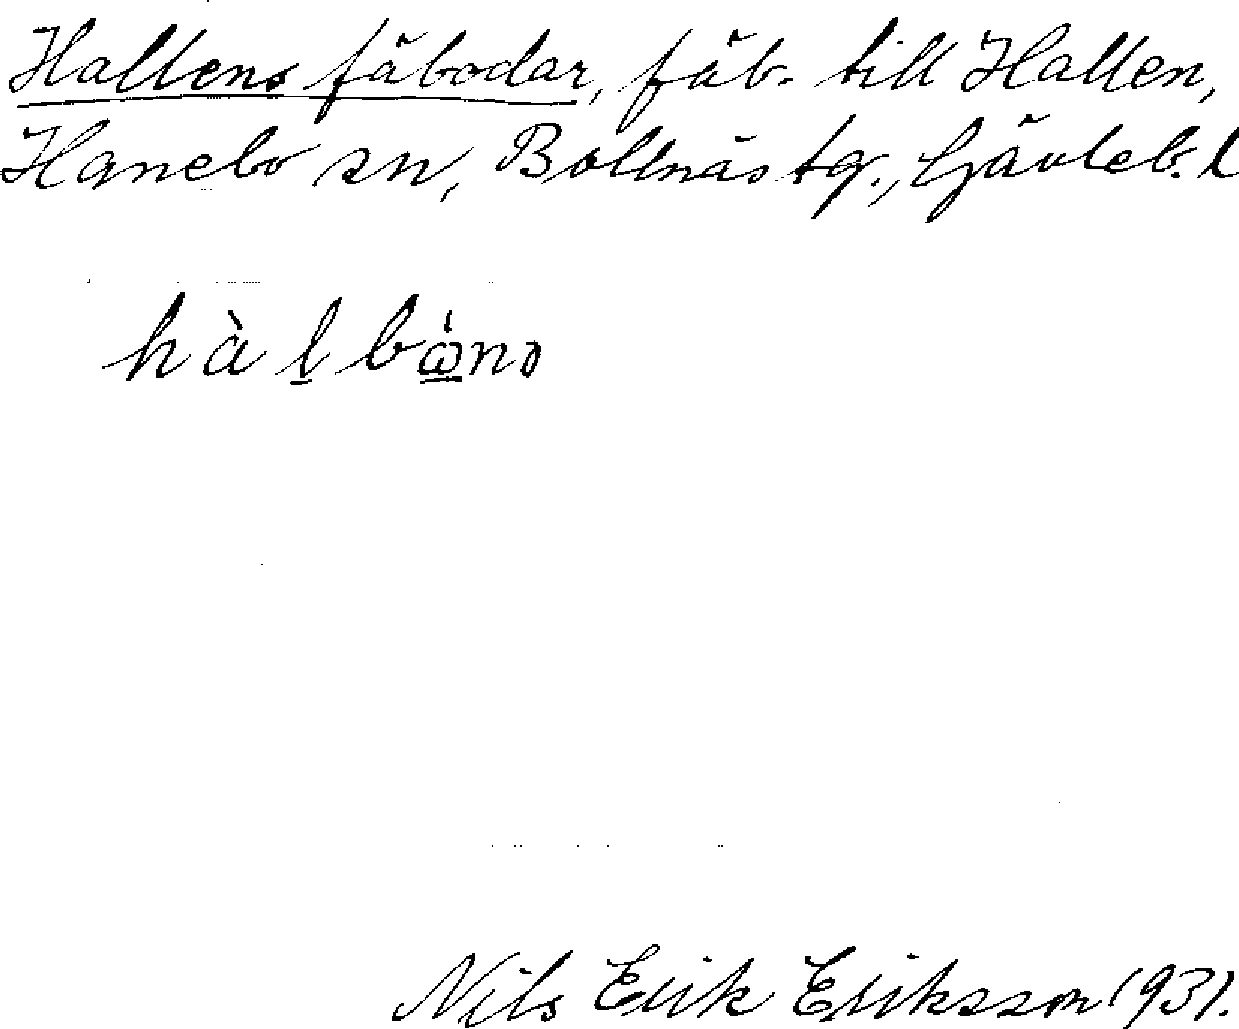 Hallens fäbodar, fäb. till Hallen,
Hanebo sn, Bollnäs tg., Gävleb. l
Nils Erik Eriksson 1931.